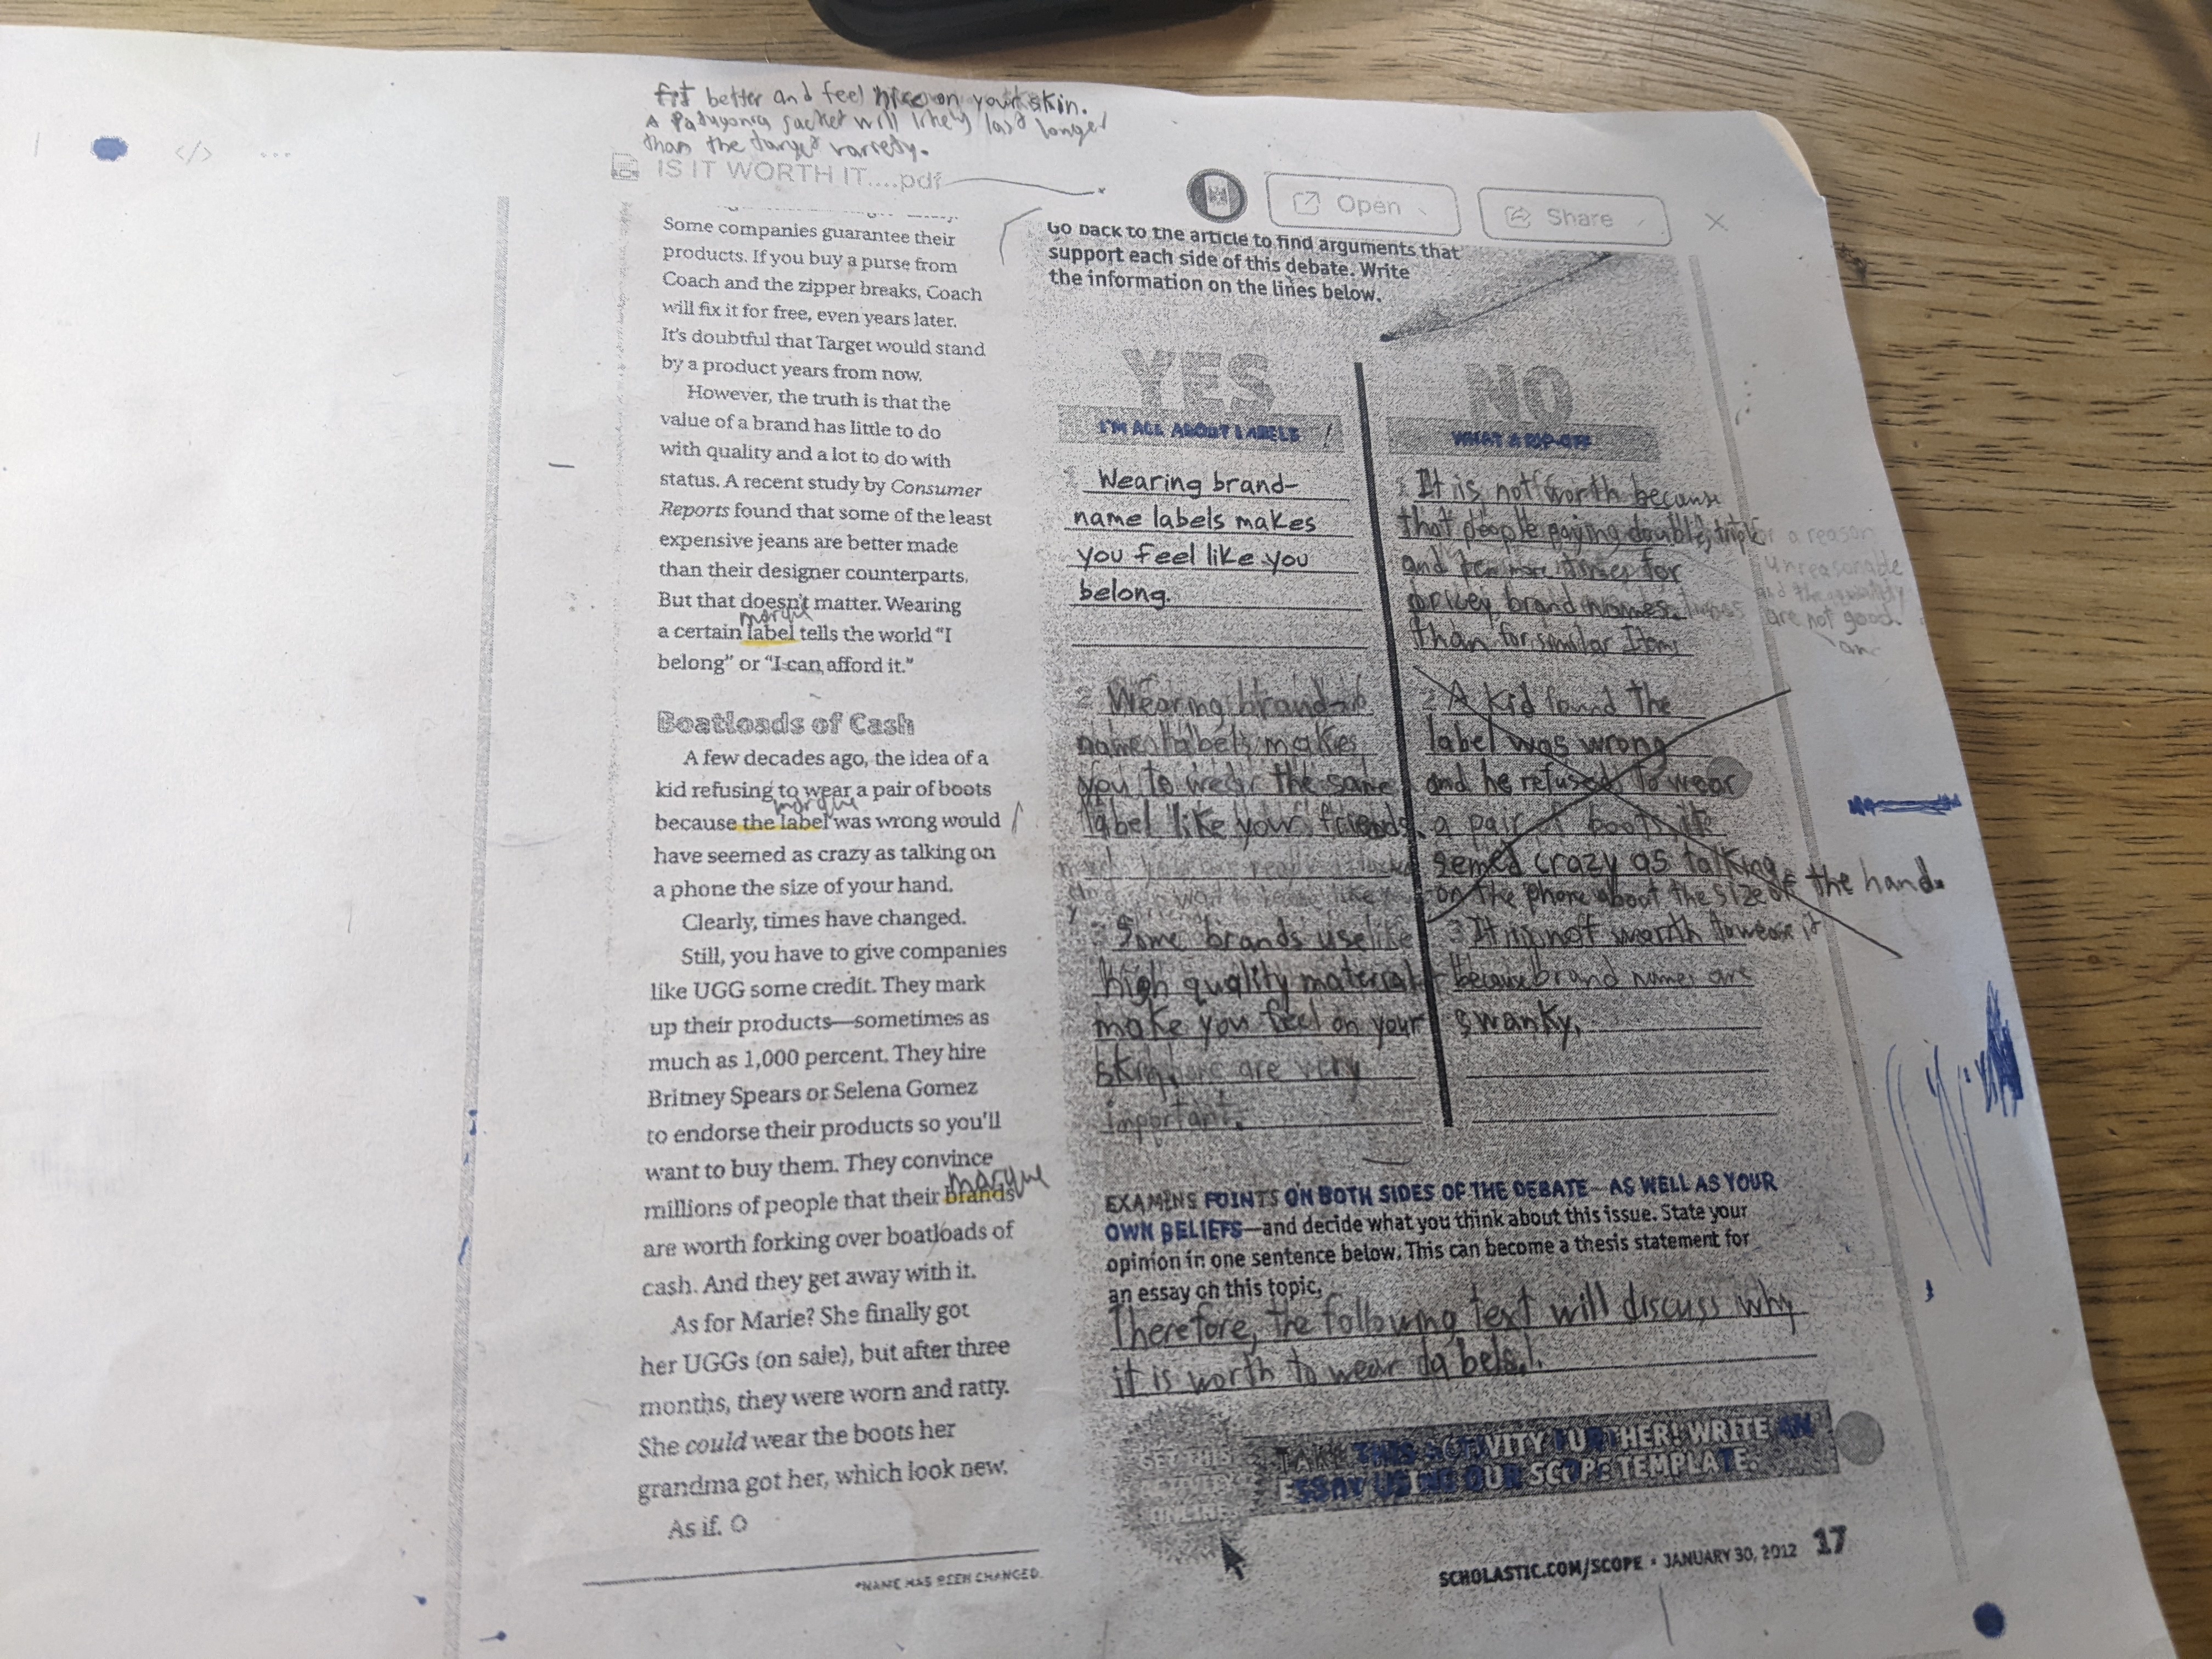 fit better and feel nice on your skin.
A Patagonia jacket will likely last longer
than the target variety.
IS IT WORTH IT....pdf
Open
Share
Some companies guarantee their
products. If you buy a purse from
Coach and the zipper breaks, Coach
will fix it for free, even years later.
It's doubtful that Target would stand
by a product years from now.
However, the truth is that the
value of a brand has little to do
with quality and a lot to do with
status. A recent study by Consumer
Reports found that some of the least
expensive jeans are better made
than their designer counterparts.
But that doesn't matter. Wearing
marque
a certain label tells the world "I
belong" or "I can afford it."
Boatloads of Cash
A few decades ago, the idea of a
kid refusing to wear a pair of boots
marque
because the label was wrong would
have seemed as crazy as talking on
a phone the size of your hand.
Clearly, times have changed.
Still, you have to give companies
like UGG some credit. They mark
up their products—sometimes as
much as 1,000 percent. They hire
Britney Spears or Selena Gomez
to endorse their products so you'll
want to buy them. They convince
marque
millions of people that their brands
are worth forking over boatloads of
cash. And they get away with it.
As for Marie? She finally got
her UGGs (on sale), but after three
months, they were worn and ratty.
She could wear the boots her
grandma got her, which look new.
As if.
*NAME HAS BEEN CHANGED.
Go back to the article to find arguments that
support each side of this debate. Write
the information on the lines below.
YES
I'M ALL ABOUT LABELS!
1 Wearing brand-
name labels makes
you feel like you
belong.
2 Wearing brand-
name labels makes
you to wear the same
label like your friends.
3 Some brands use like
high quality material
make you feel on your
skin, are very
important.
NO
WHAT A RIP-OFF
1 It is not worth because
that people paying double, triple
and ten more times for
pricey brand names.
than for similar Items
a reason
unreasonable
and the quality
are not good.
2 A kid found the
label was wrong
and he refused to wear
a pair of boots it
semed crazy as talking
on the phone about the size of the hand.
3 It is not worth to wear it
because brand names are
swanky.
EXAMINE POINTS ON BOTH SIDES OF THE DEBATE—AS WELL AS YOUR
OWN BELIEFS—and decide what you think about this issue. State your
opinion in one sentence below. This can become a thesis statement for
an essay on this topic.
Therefore, the following text will discuss why
it is worth to wear labels.
GET THIS
ACTIVITY
ONLINE
TAKE THIS ACTIVITY FURTHER! WRITE AN
ESSAY USING OUR SCOPE TEMPLATE.
SCHOLASTIC.COM/SCOPE • JANUARY 30, 2012 17